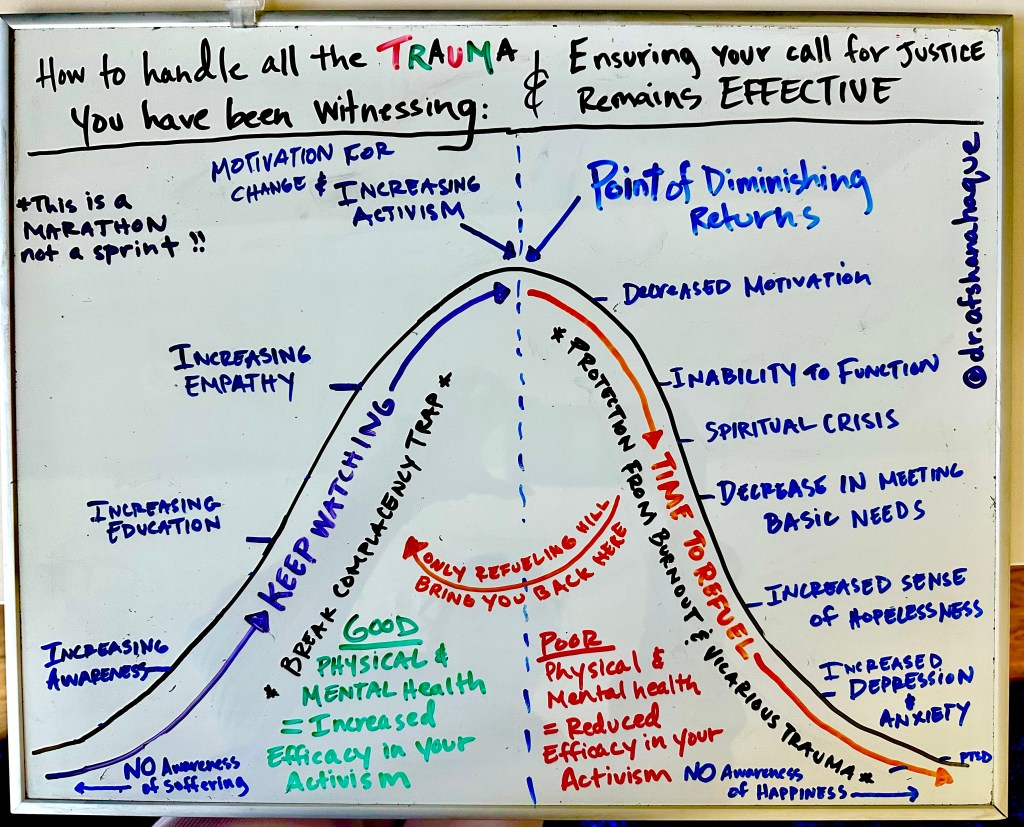 How to handle all the TRAUMA
You have been Witnessing:
& Ensuring your call for JUSTICE
Remains EFFECTIVE
*This is a
MARATHON
not a sprint !!
MOTIVATION FOR
CHANGE & INCREASING
ACTIVISM
Point of Diminishing
Returns
@dr.afshanahaque
INCREASING
EMPATHY
INCREASING
EDUCATION
INCREASING
AWARENESS
NO Awareness
of Suffering
KEEP WATCHING
* BREAK COMPLACENCY TRAP *
GOOD
PHYSICAL &
MENTAL Health
= Increased
Efficacy in your
Activism
ONLY REFUELING WILL
BRING YOU BACK HERE
POOR
Physical &
Mental health
= Reduced
Efficacy in your
Activism
* PROTECTION FROM BURNOUT & VICARIOUS TRAUMA *
TIME TO REFUEL
DECREASED MOTIVATION
INABILITY TO FUNCTION
SPIRITUAL CRISIS
DECREASE IN MEETING
BASIC NEEDS
INCREASED SENSE
OF HOPELESSNESS
INCREASED
DEPRESSION
& ANXIETY
PTSD
NO Awareness
of HAPPINESS